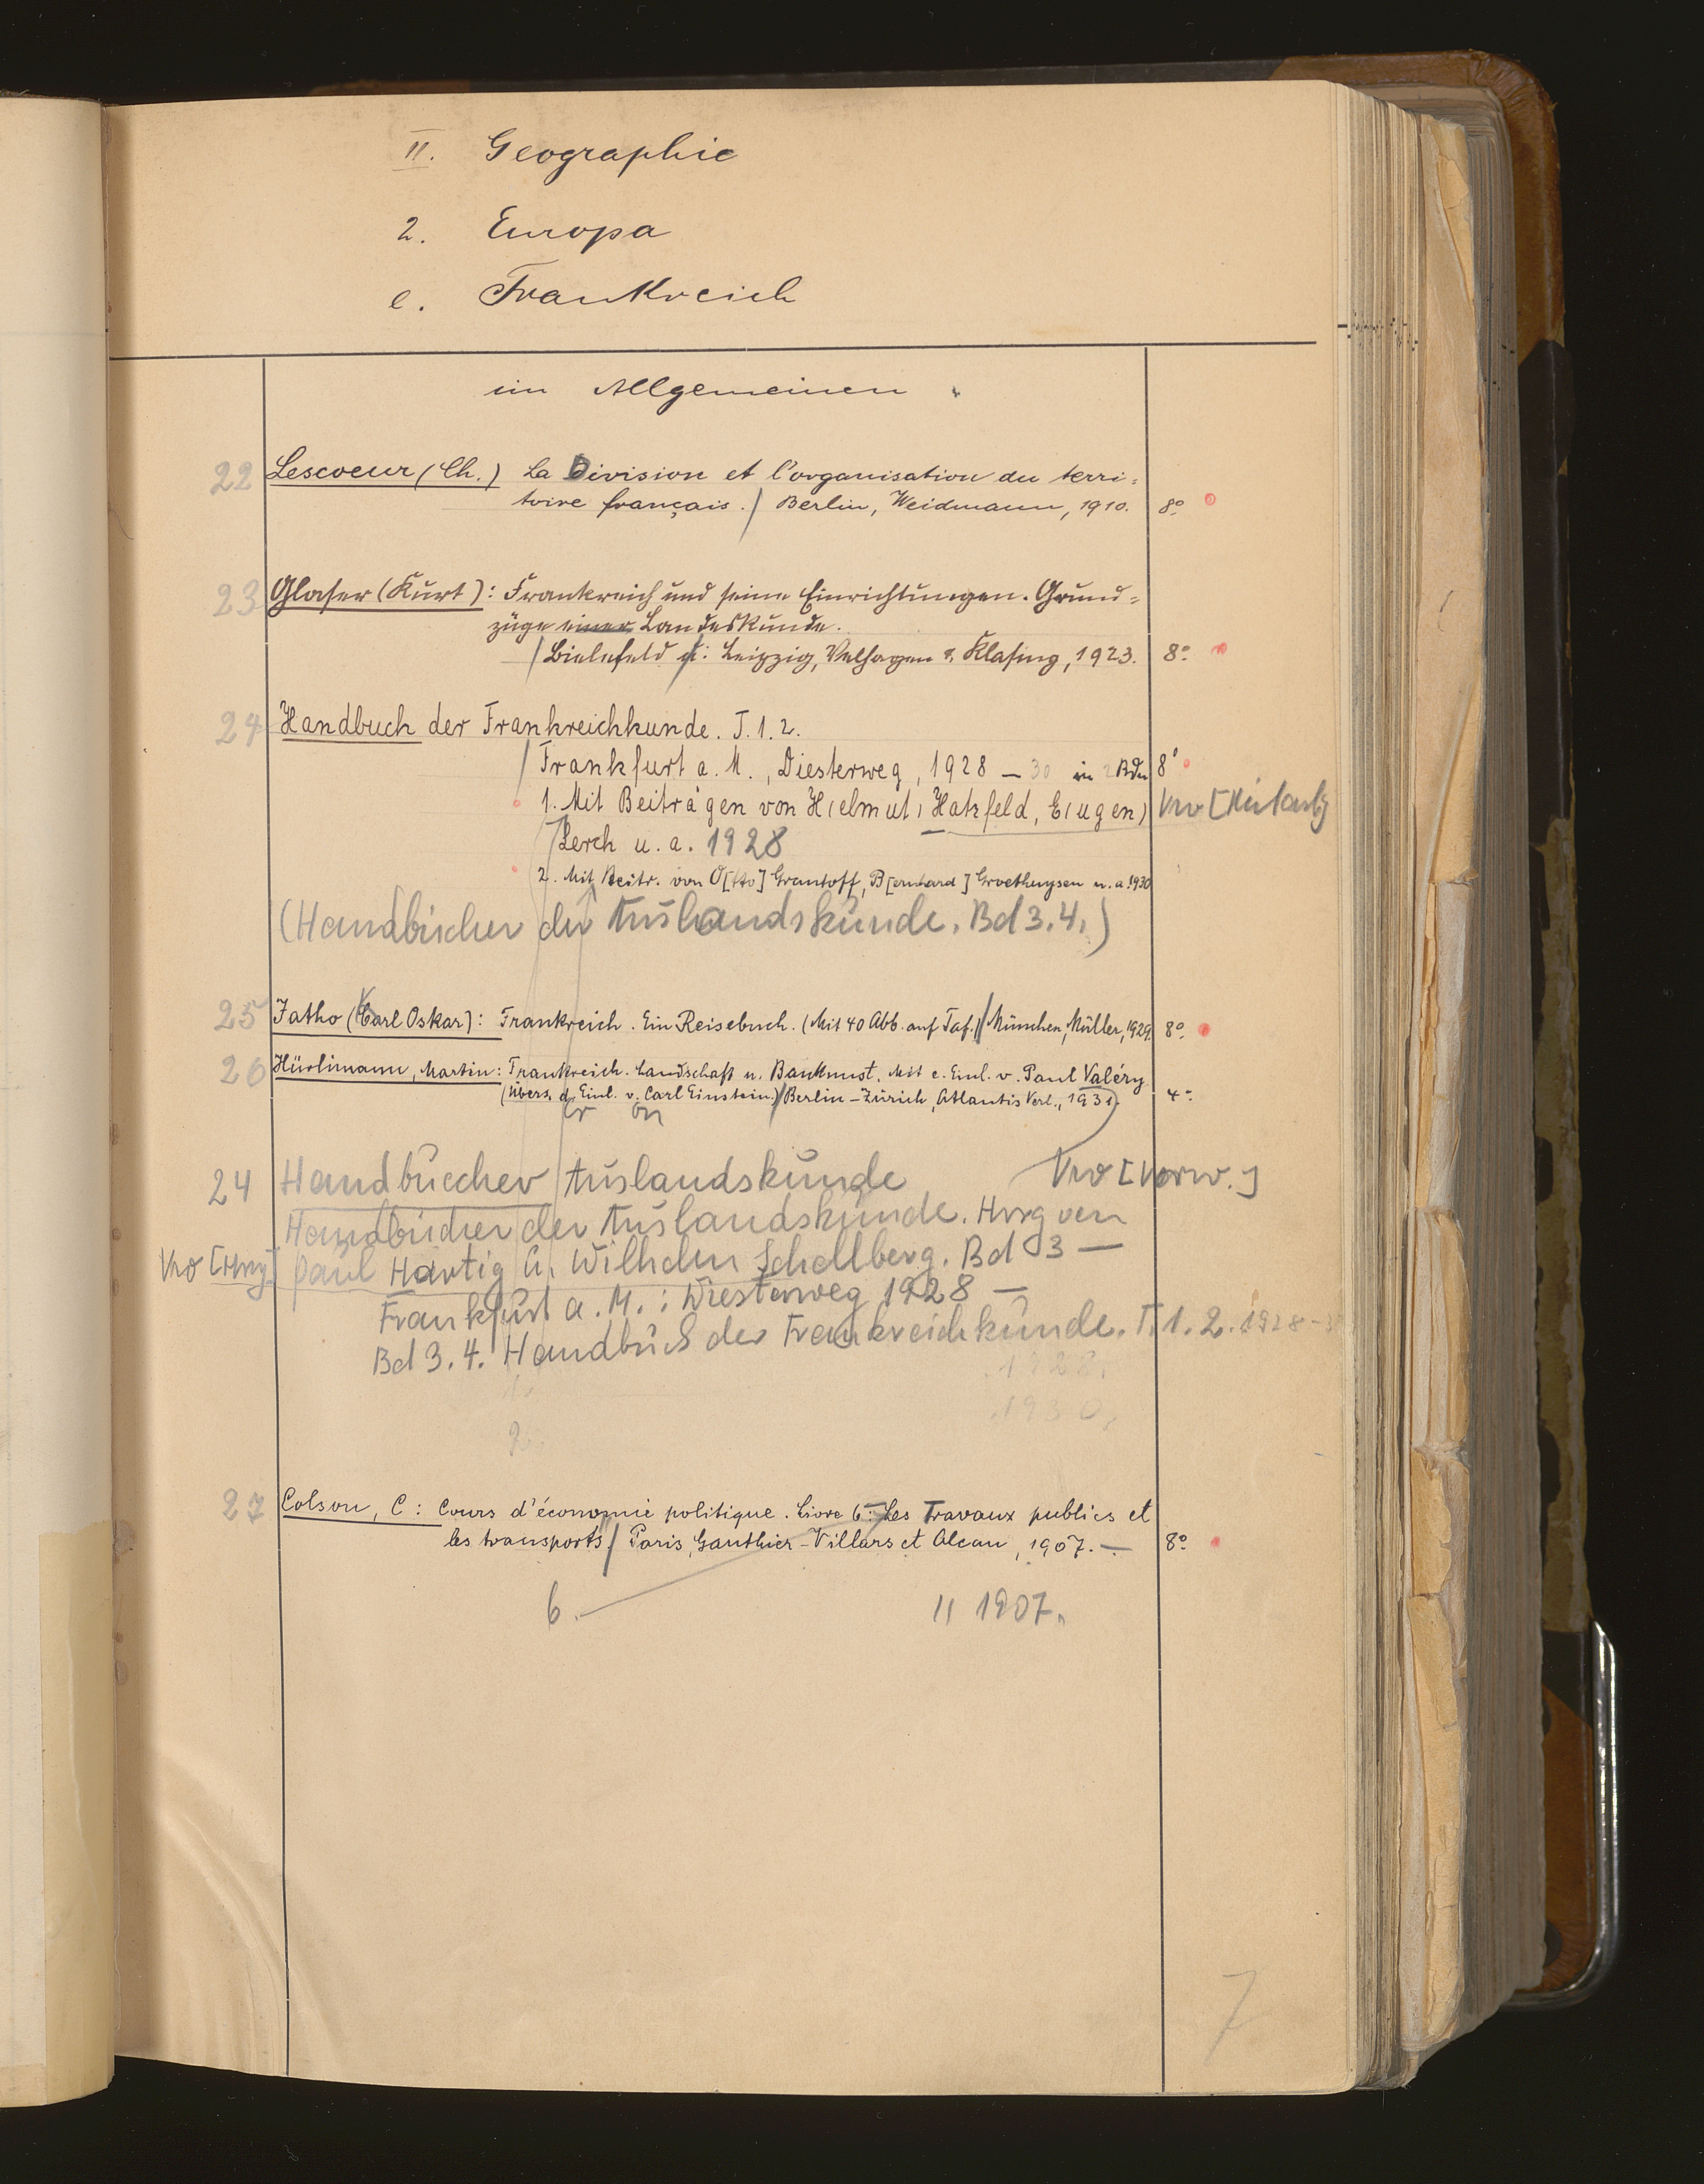 II. Geographie
2. Europa
e. Frankreich
im Allgemeinen.
22 Lescoeur (Ch.) La Division et l'organisation du terri=
toire français. / Berlin, Weidmann, 1910. 8º
23 Glaser (Kurt): Frankreich und seine Einrichtungen. Grund=
züge einer Landeskunde.
/ Bielefeld u: Leipzig, Velhagen & Klasing, 1923. 8º
24 Handbuch der Frankreichkunde. T. 1. 2.
/ Frankfurt a. M., Diesterweg, 1928 – 30 in 2 Bdn 8º
1. Mit Beiträgen von H(elmut) Hatzfeld, E(ugen) Vw [Mitarb]
Lerch u. a. 1928
2. Mit Beitr. von O[tto] Grautoff, B[ernhard] Groethuysen u. a. 1930
(Handbücher der Auslandskunde. Bd 3. 4.)
25 Jatho (Carl Oskar): Frankreich. Ein Reisebuch. (Mit 40 Abb. auf Taf.) // München, Müller, 1929. 8º
26 Hürlimann, Martin: Frankreich. Landschaft u. Baukunst. Mit e. Einl. v. Paul Valéry
(Übers. d. Einl. v. Carl Einstein.) // Berlin – Zürich, Atlantis Verl., 1931. 4º
er on
24 Handbücher Auslandskunde Vw [Vorw.]
Handbücher der Auslandskunde. Hrsg von
Vw [Hrsg] Paul Hartig u. Wilhelm Schellberg. Bd 3 –
Frankfurt a. M.: Diesterweg 1928 –
Bd 3. 4. Handbuch der Frankreichkunde. T. 1. 2. 1928 –
1. 1928.
2. 1930.
27 Colson, C: Cours d'économie politique. Livre 6: Les Travaux publics et
les transports / Paris, Gauthier-Villars et Alcan, 1907. – 8º
6. – 11 1907.
7